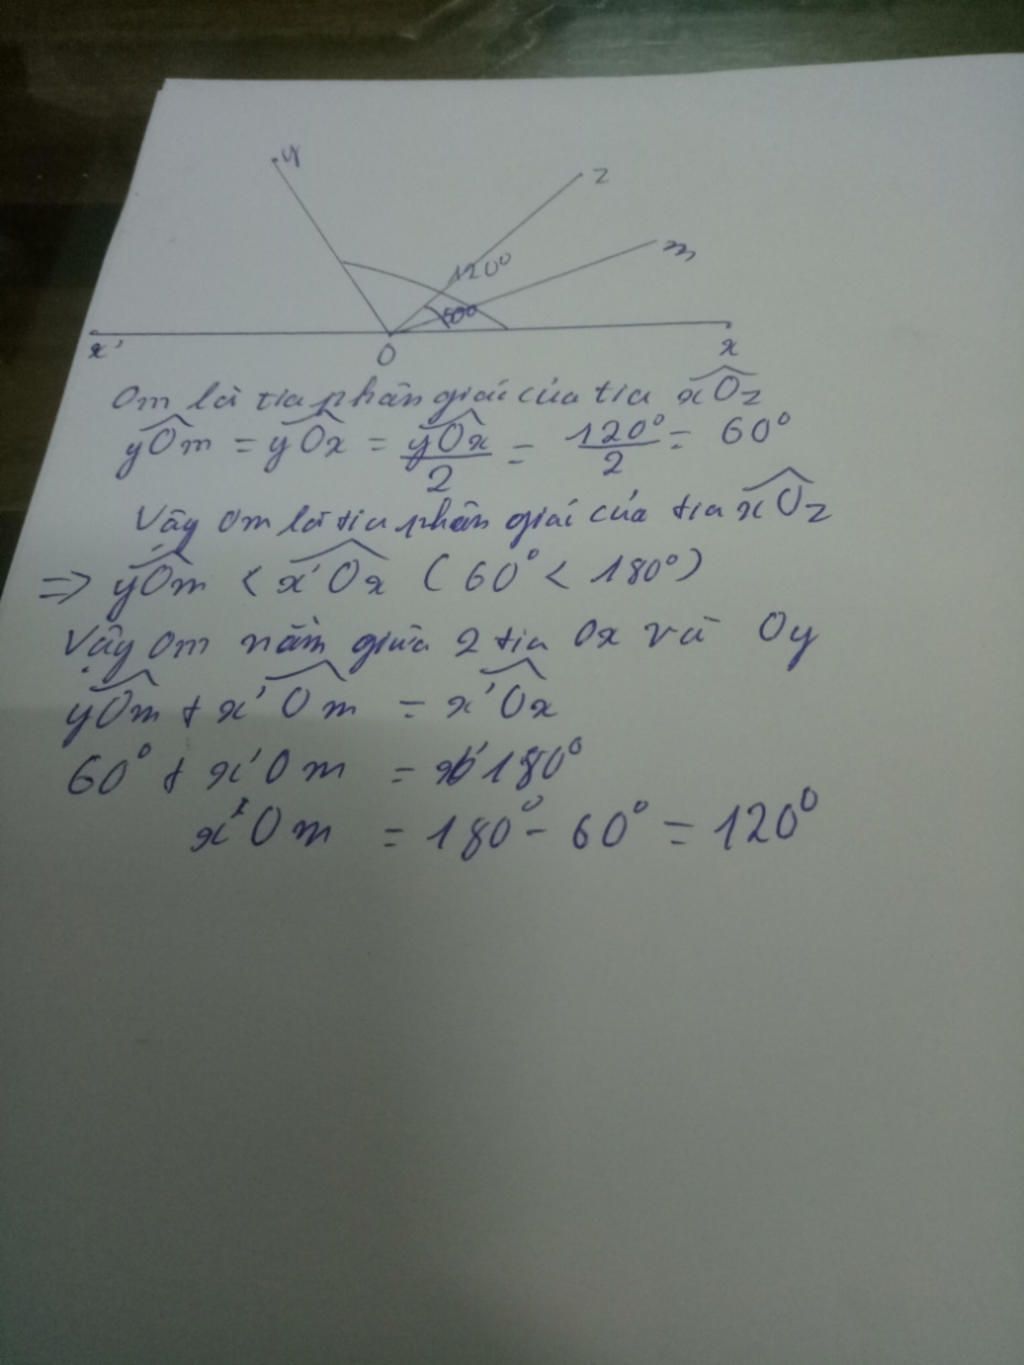 y
z
120°
m
60°
x'
O
x
Om là tia phân giác của tia xOz
yOm = yOx = yOx/2 = 120°/2 = 60°
Vậy Om là tia phân giác của tia xOz
=> yOm < x'Ox (60° < 180°)
Vậy Om nằm giữa 2 tia Ox và Oy
yOm + x'Om = x'Ox
60° + x'Om = 180°
x'Om = 180° - 60° = 120°